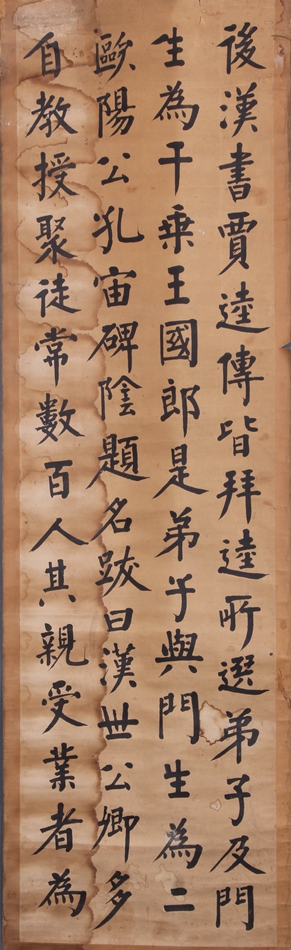 後漢書賈逵傳皆拜逵所選弟子及門
生為干乗王國郎是弟子與門生為二
歐陽公孔宙碑陰題名跋曰漢世公卿多
自教授聚徒常數百人其親受業者為